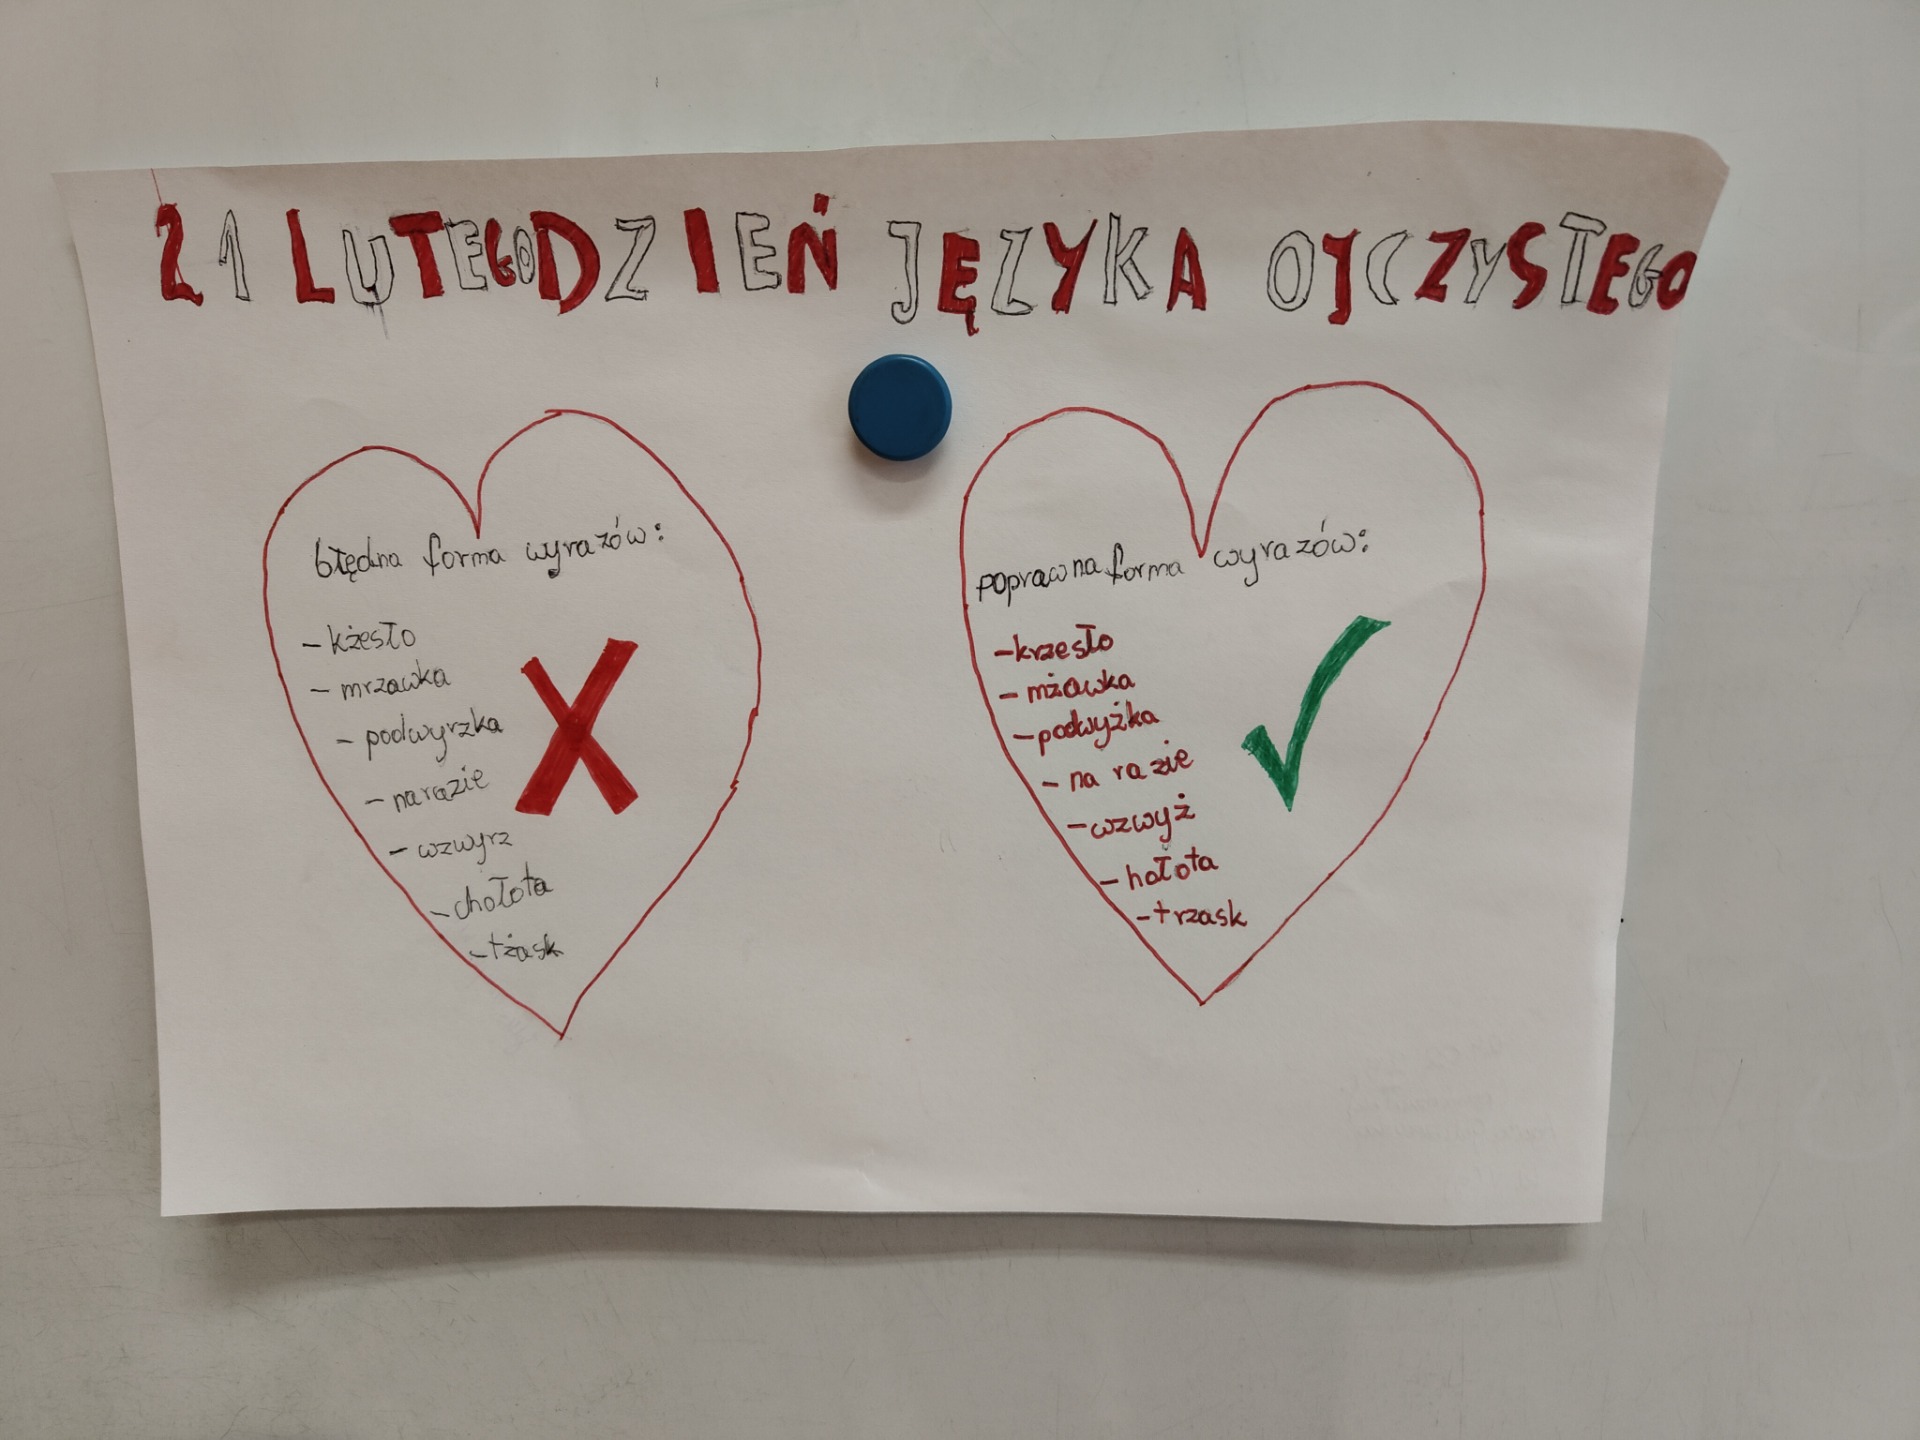 21 LUTEGO DZIEŃ JĘZYKA OJCZYSTEGO
błędna forma wyrazów:
- kżesło
- mrzawka
- podwyrzka
- narazie
- wzwyrz
- chołota
- tżask
poprawna forma wyrazów:
- krzesło
- mżawka
- podwyżka
- na razie
- wzwyż
- hołota
- trzask